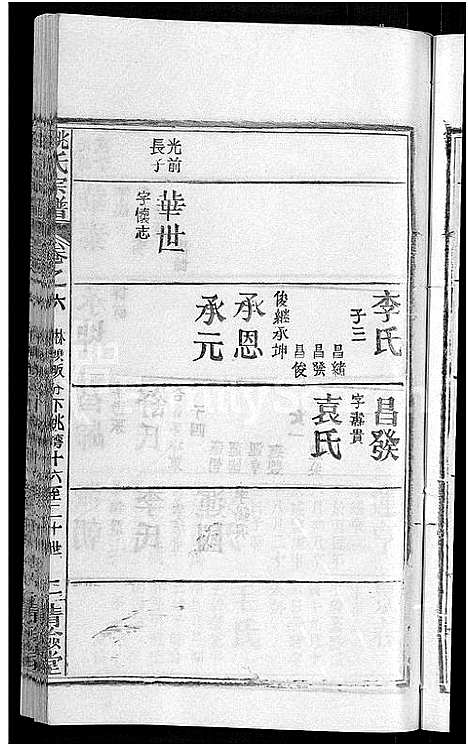 光前
長子
華世
字懷志
李氏
子三
昌緒
昌發
昌俊
俊繼承坤
承恩
承元
昌發
字壽貴
袁氏
姚氏宗譜
卷之六
下姚灣十六至二十世